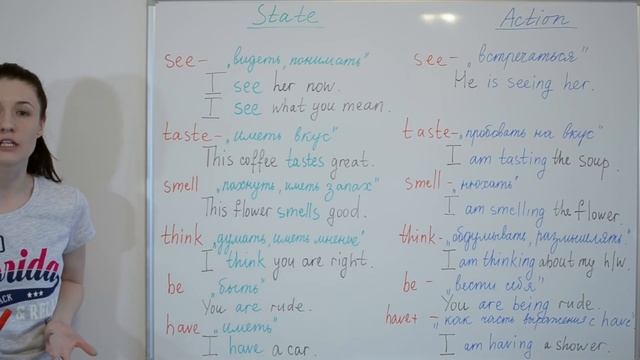 State
see - „видеть, понимать"
I see her now.
I see what you mean.
taste - „иметь вкус"
This coffee tastes great.
smell „пахнуть, иметь запах"
This flower smells good.
think „думать, иметь мненье"
I think you are right.
be „быть"
You are rude.
have „иметь"
I have a car.
Action
see - „встречаться"
He is seeing her.
taste - „пробовать на вкус"
I am tasting the soup.
smell - „нюхать"
I am smelling the flower.
think - „обдумывать, размышлять"
I am thinking about my h/w.
be - „вести себя"
You are being rude.
have+ - „как часть выражения с have"
I am having a shower.